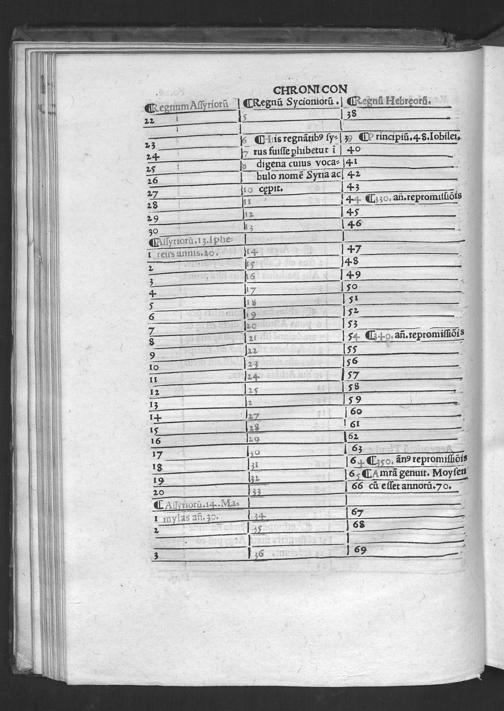 CHRONICON
¶Regnum Assyriorū ¶Regnū Sycioniorū. ¶Regnū Hebreorū.
22 5 38
23 6 ¶His regnātibꝰ sy- 39 ¶Principiū. 48. Iobilei.
24 7 rus fuisse phibetur i 40
25 8 digena cuius voca- 41
26 bulo nomē Syria ac 42
27 10 cepit. 43
28 11 44 ¶330. añ. repromissiōis
29 12 45
30 13 46
¶Assyriorū. 13. Iphe-
1 reus annis. 20. 14 47
2 15 48
3 16 49
4 17 50
5 18 51
6 19 52
7 20 53
8 21 54 ¶340. añ. repromissiōis
9 22 55
10 23 56
11 24 57
12 25 58
13 2 59
14 27 60
15 28 61
16 29 62
17 30 63
18 31 64 ¶350. ānꝰ repromissiōis
19 32 65 ¶Amrā genuit. Moysen
20 33 66 cū esset annorū. 70.
¶Assyriorū. 14. Ma-
1 mylas añ. 30. 34 67
2 35 68
3 36 69